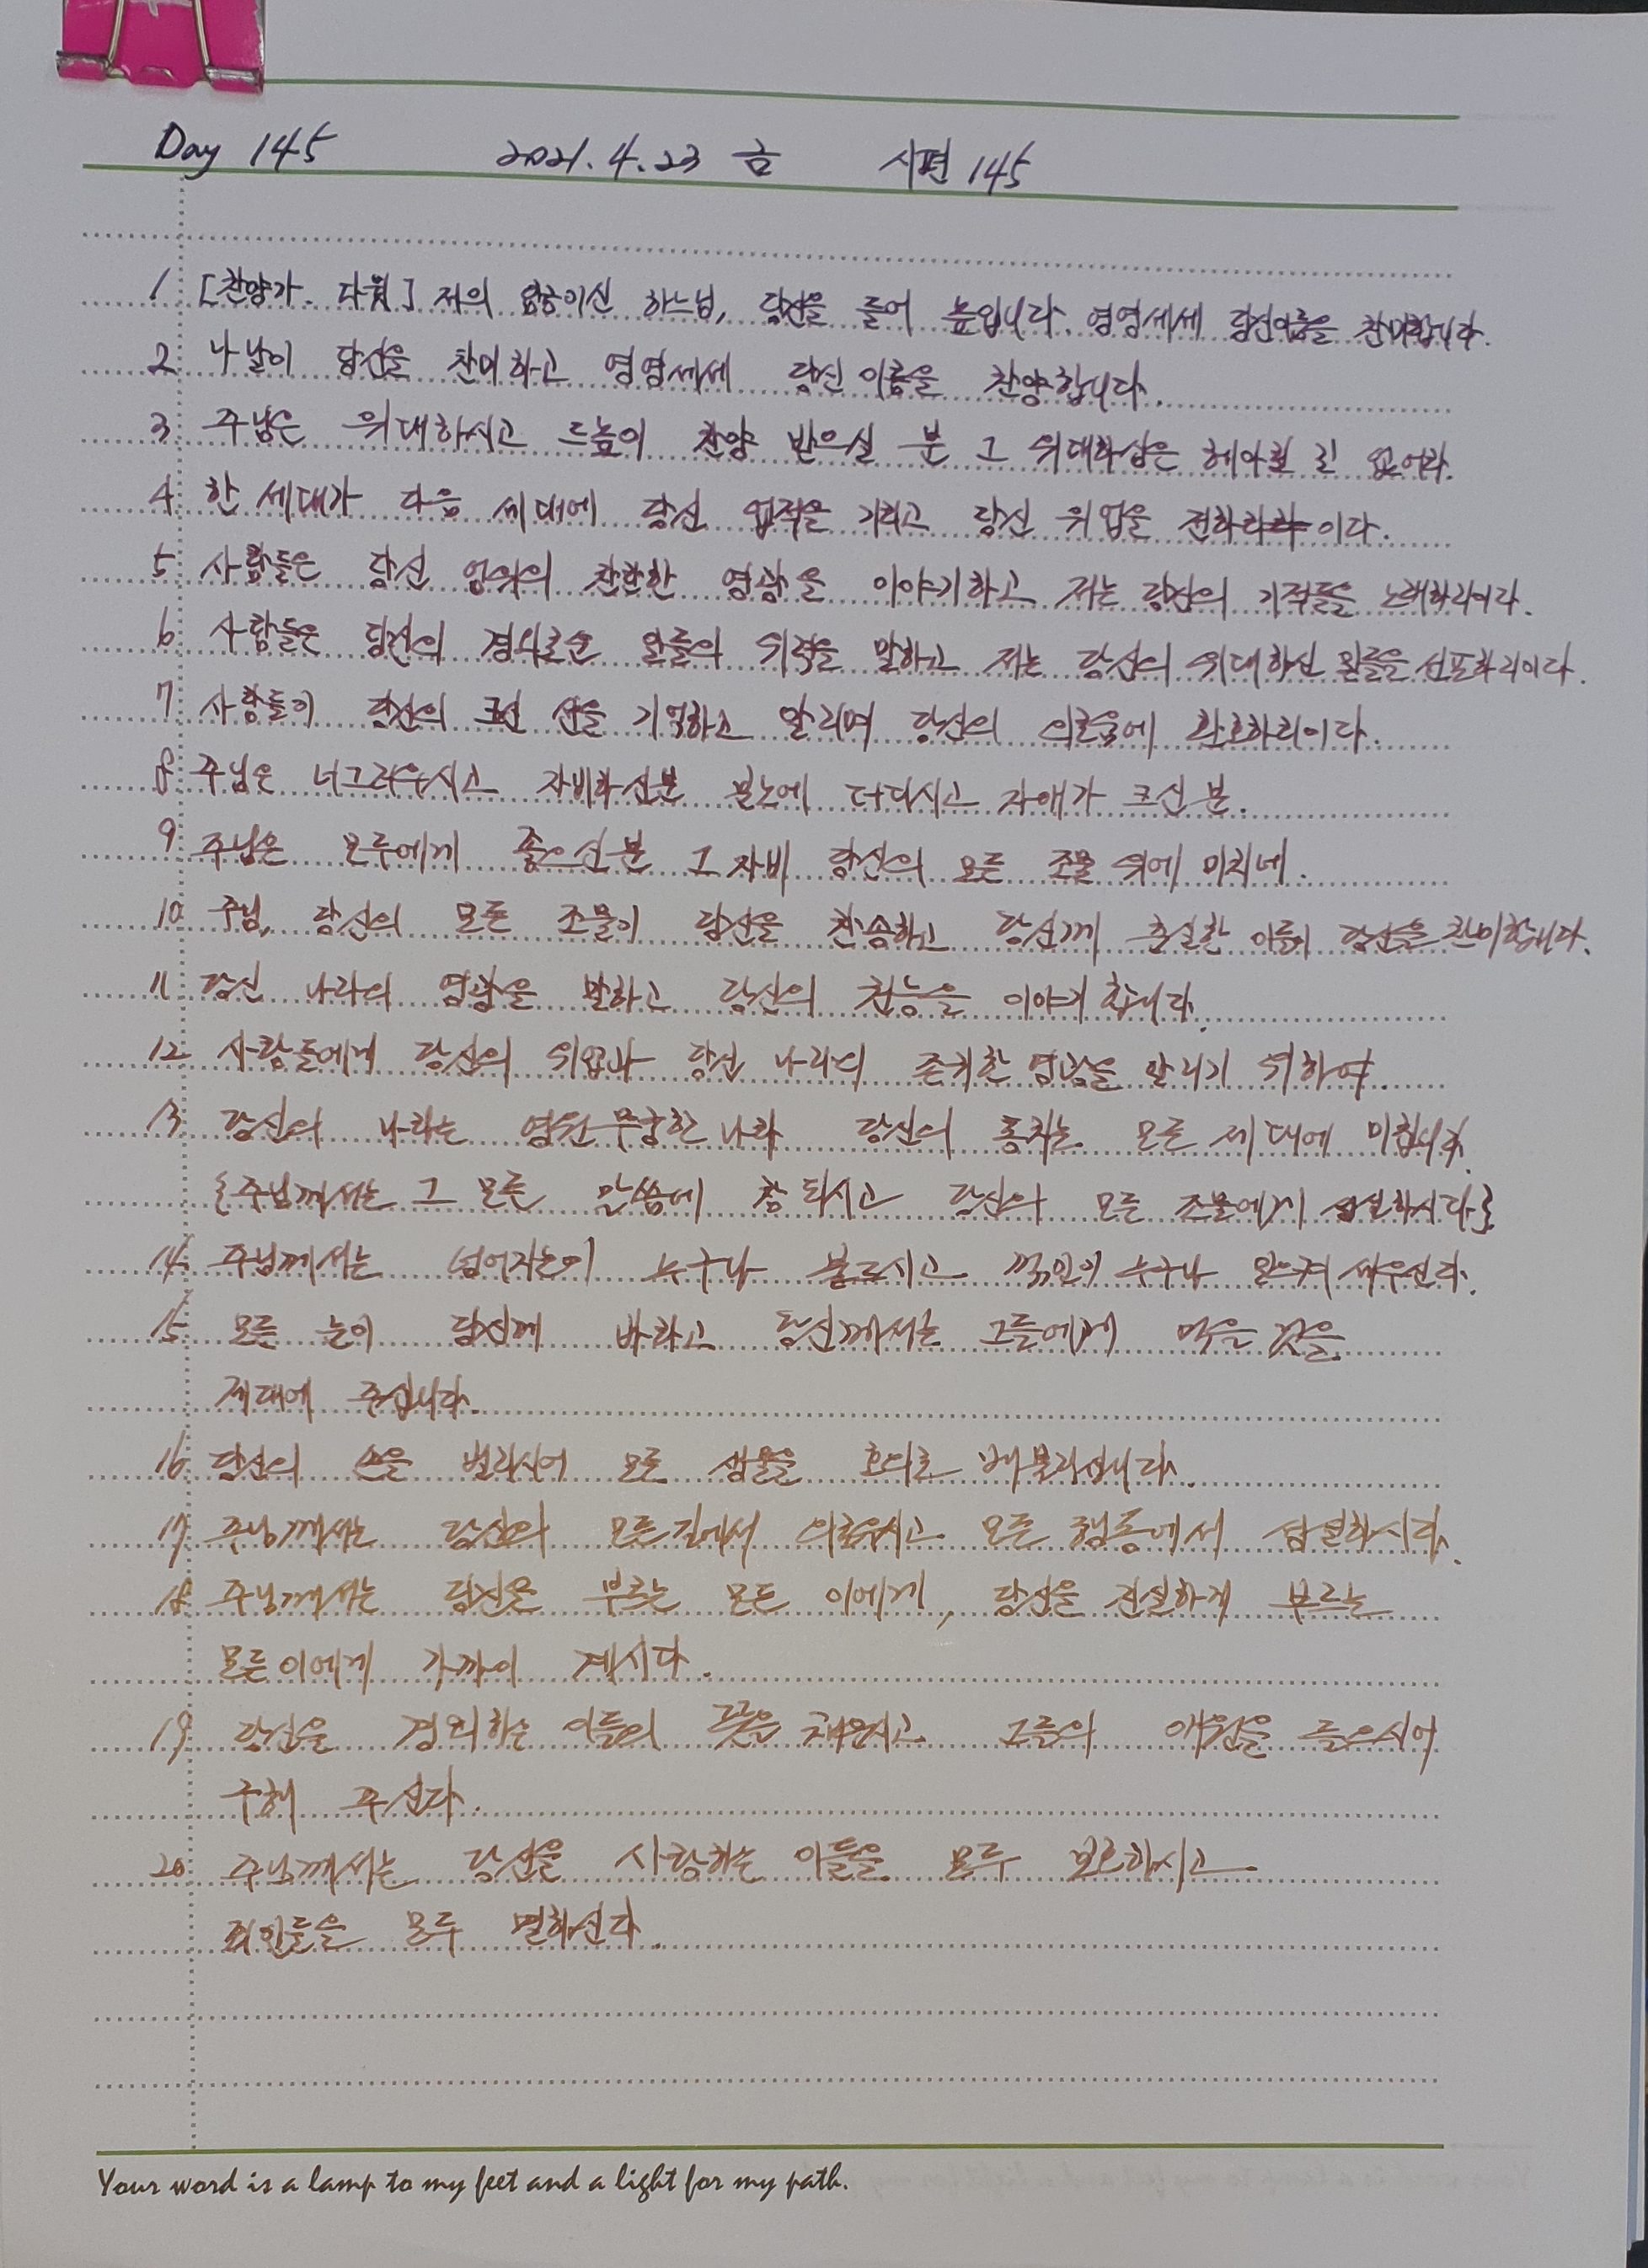 Day 145 2021.4.23 금 시편 145
1 [찬양가. 다윗] 저의 임금이신 하느님, 당신을 들어 높입니다. 영영세세 당신이름을 찬미합니다.
2 나날이 당신을 찬미하고 영영세세 당신 이름을 찬양합니다.
3 주님은 위대하시고 드높이 찬양 받으실 분 그 위대하심은 헤아릴 길 없어라.
4 한 세대가 다음 세대에 당신 업적을 기리고 당신 위업을 전하리이다.
5 사람들은 당신 엄위의 찬란한 영광을 이야기하고 저는 당신의 기적들을 노래하리이다.
6 사람들은 당신의 경외로운 일들의 위력을 말하고 저는 당신의 위대하신 일들을 선포하리이다.
7 사람들이 당신의 크신 선을 기억하고 알리며 당신의 의로움에 환호하리이다.
8 주님은 너그러우시고 자비하신분 분노에 더디시고 자애가 크신 분.
9 주님은 모두에게 좋으신분 그 자비 당신의 모든 조물 위에 미치네.
10 주님, 당신의 모든 조물이 당신을 찬송하고 당신께 충실한 이들이 당신을 찬미합니다.
11 당신 나라의 영광을 말하고 당신의 권능을 이야기 합니다.
12 사람들에게 당신의 위업과 당신 나라의 존귀한 영광을 알리기 위하여.
13 당신의 나라는 영원무궁한 나라 당신의 통치는 모든 세대에 미칩니다.
{주님께서는 그 모든 말씀에 참되시고 당신의 모든 조물에게 성실하시다}
14 주님께서는 넘어지는이 누구나 붙드시고 꺾인이 누구나 일으켜 세우신다.
15 모든 눈이 당신께 바라고 당신께서는 그들에게 먹을 것을
제때에 주십니다.
16 당신의 손을 벌리시어 모든 생물을 호의로 배불리십니다.
17 주님께서는 당신의 모든길에서 의로우시고 모든 행동에서 성실하시다.
18 주님께서는 당신을 부르는 모든 이에게, 당신을 진실하게 부르는
모든이에게 가까이 계시다.
19 당신을 경외하는 이들의 뜻을 채우시고 그들의 애원을 들으시어
구해 주신다.
20 주님께서는 당신을 사랑하는 이들을 모두 보호하시고
죄인들을 모두 멸하신다.
Your word is a lamp to my feet and a light for my path.